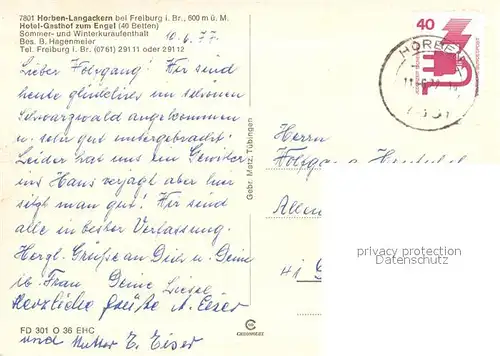 7801 Horben-Langackern bei Freiburg i. Br., 600 m ü. M.
Hotel-Gasthof zum Engel (40 Betten)
Sommer- und Winterkuraufenthalt
Bes. B. Hagenmeier
Tel. Freiburg i. Br. (0761) 29111 oder 29112
10.6.77.
Lieber Wolfgang! Wir sind
heute glücklich im schönen
Schwarzwald angekommen
u. sehr gut untergebracht!
Leider hat uns ein Gewitter
ins Haus verjagt aber hier
sitzt man gut! Wir sind
alle in bester Verfassung.
Herzl. Grüße an Dich u. Deine
lb. Frau Deine Liesel
Herzliche Grüße A. Eiser
und Mutter E. Eiser
FD 301 O 36 EHC
Gebr. Metz, Tübingen
CEKOMBERT
40
HORBEN
Herrn
Wolfgang
privacy protection
watermark